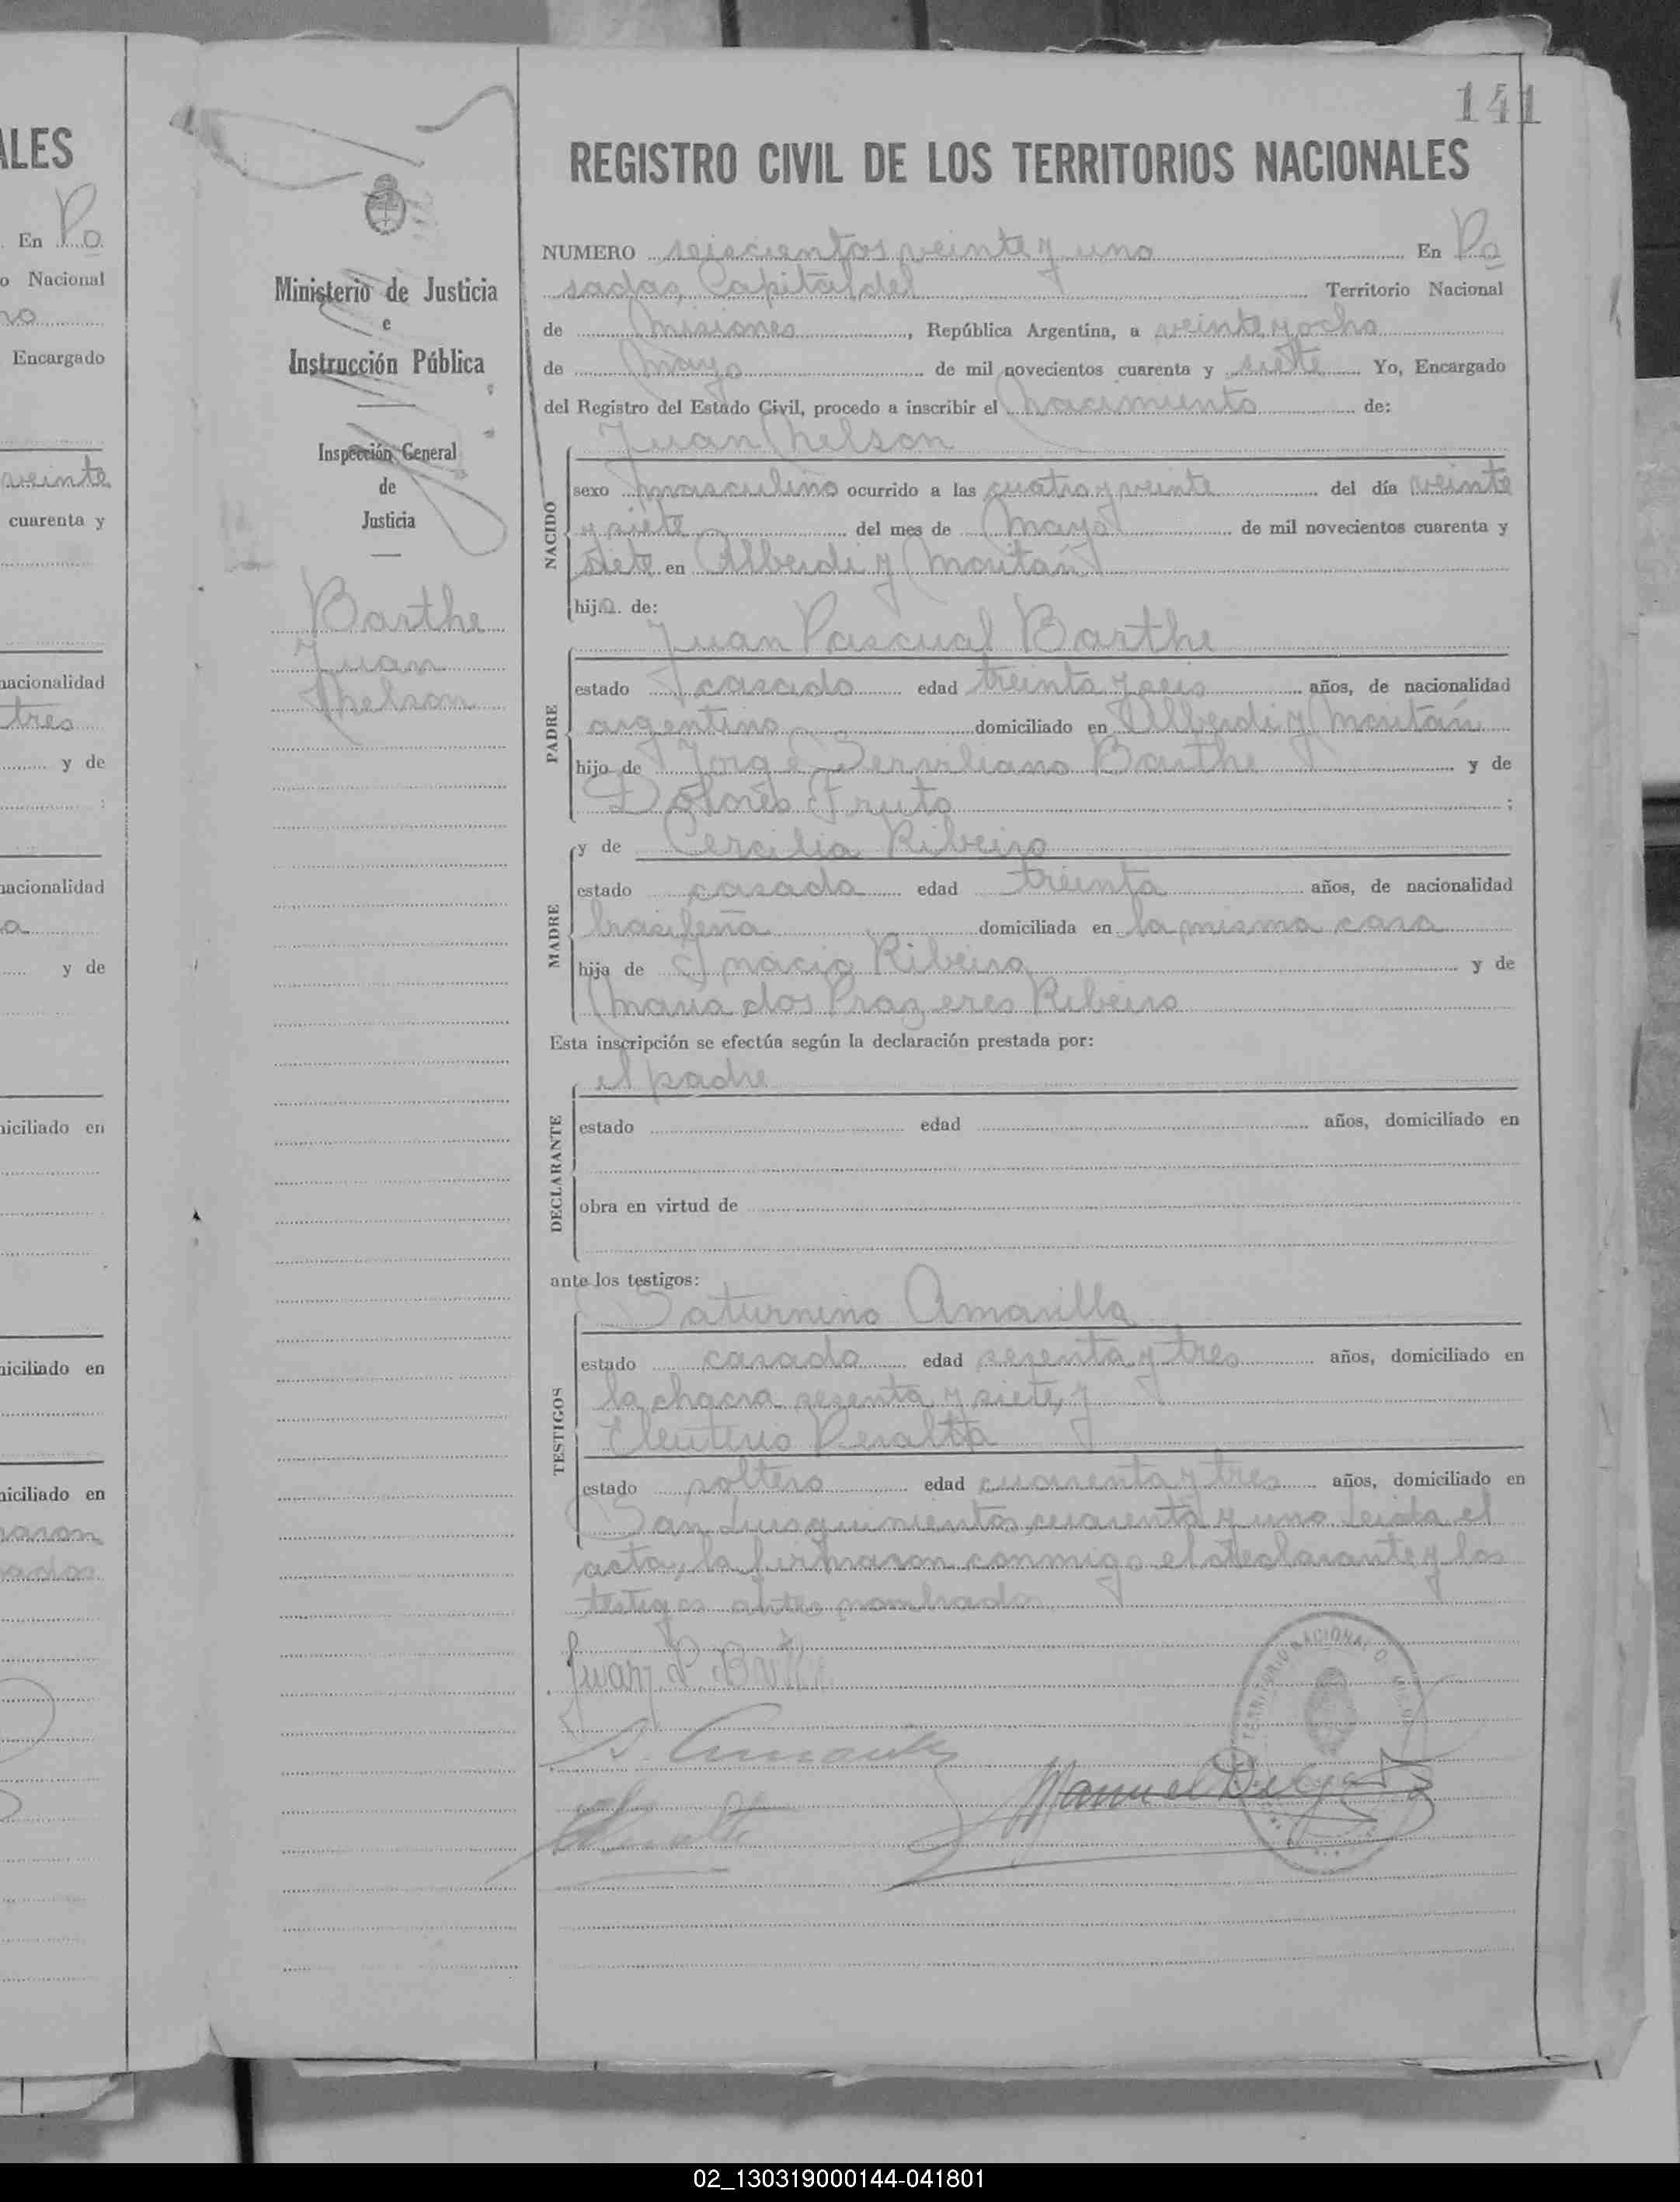 ALES
En Po
o Nacional
no
Encargado
veinte
cuarenta y
nacionalidad
tres
y de
nacionalidad
a
y de
niciliado en
niciliado en
niciliado en
maron
rados
Ministerio de Justicia
e
Instrucción Pública
Inspección General
de
Justicia
Barthe
Juan
Nelson
141
REGISTRO CIVIL DE LOS TERRITORIOS NACIONALES
NUMERO seiscientos veinte y uno En Po
sadas, Capital del Territorio Nacional
de Misiones, República Argentina, a veinte y ocho
de Mayo de mil novecientos cuarenta y siete Yo, Encargado
del Registro del Estado Civil, procedo a inscribir el nacimiento de:
Juan Nelson
NACIDO
sexo masculino ocurrido a las cuatro y veinte del día veinte
y siete del mes de Mayo de mil novecientos cuarenta y
siete en Alberdi y Maitán
hijo de:
Juan Pascual Barthe
PADRE
estado casado edad treinta y seis años, de nacionalidad
argentino domiciliado en Alberdi y Maitán
hijo de Jorge Serviliano Barthe y de
Dolores Fruto ;
y de Cercilia Ribeiro
MADRE
estado casada edad treinta años, de nacionalidad
brasileña domiciliada en la misma casa
hija de Ignacio Ribeiro y de
Maria dos Prazeres Ribeiro
Esta inscripción se efectúa según la declaración prestada por:
el padre
DECLARANTE
estado edad años, domiciliado en
obra en virtud de
ante los testigos:
Saturnino Amarilla
TESTIGOS
estado casado edad sesenta y tres años, domiciliado en
la chacra sesenta y siete, y
Eleuterio Peralta
estado soltero edad cuarenta y tres años, domiciliado en
San Luis quinientos cuarenta y uno Leída el
acta, la firmaron conmigo el declarante y los
testigos antes nombrados
Juan P. Barthe
Manuel Delgado
02_130319000144-041801